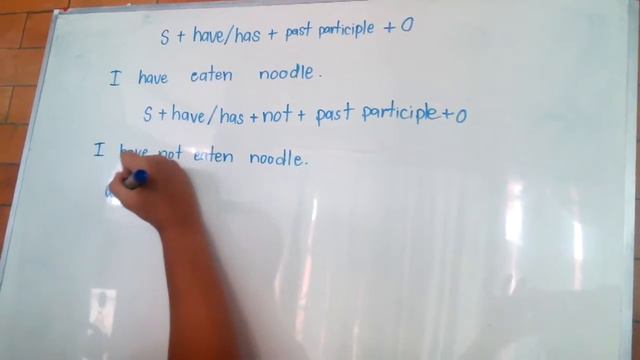 S + have/has + past participle + O
I have eaten noodle.
S + have/has + not + past participle + O
I have not eaten noodle.